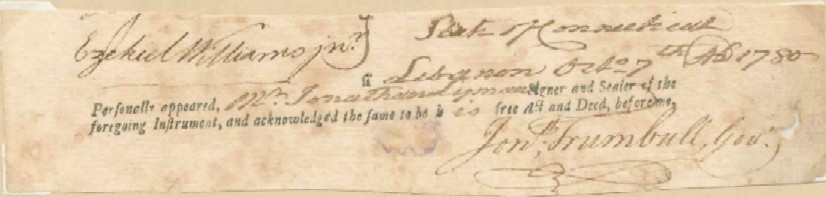 Ezekiel Williams junr } State of Connecticut
ss Lebanon Octo 7th AD 1780
Personally appeared, Mr. Jonathan Lyman Signer and Sealer of the
foregoing Instrument, and acknowledged the same to be his free Act and Deed, before me,
Jonth Trumbull, Govr.